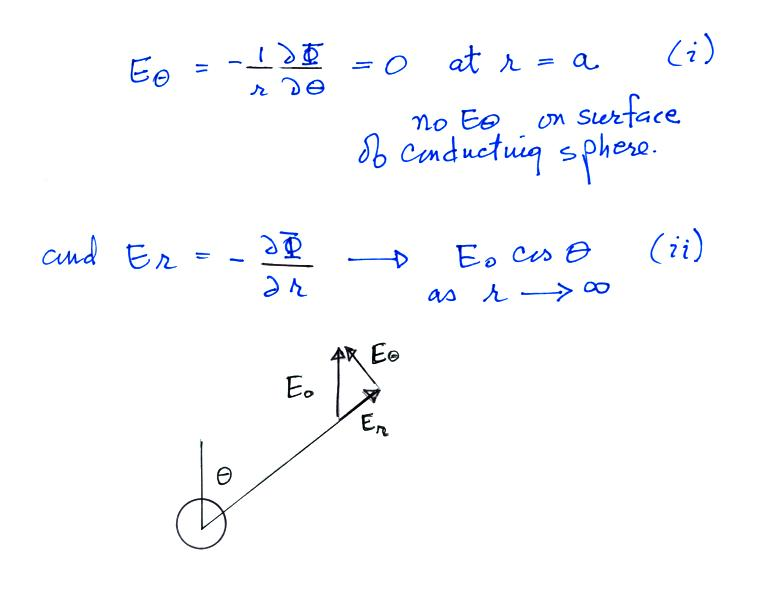 E_θ = - 1/r ∂Φ/∂θ = 0 at r = a (i)
no E_θ on surface
of conducting sphere.
and E_r = - ∂Φ/∂r → E_0 cos θ (ii)
as r → ∞
E_θ
E_0
E_r
θ